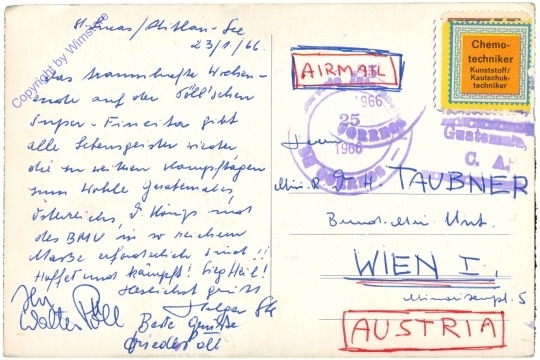 23/1./66.
Copyright by Wimstree
Das traumhafte Wochen-
ende auf der Pöll'schen
Super-Finca gibt
alle Lebensgeister wieder
die zu weiteren Kampftagen
zum Wohle Guatemalas,
Österreichs, d. Königs und
des BMU in so reichem
Maße erforderlich sind!!
Hoffet und kämpft! Sieg Heil!
Herzlichst grüßt
Ihr
Walter Pöll
Holger
Beste Grüße
Friedl Pöll
AIRMAIL
1966
25
CORREOS
1966
Chemo-
techniker
Kunststoff/
Kautschuk-
techniker
Guatemala,
C. A.
Herrn
Min. R. D. H. TAUBNER
Bund. Min. Unt.
WIEN I.
5
AUSTRIA